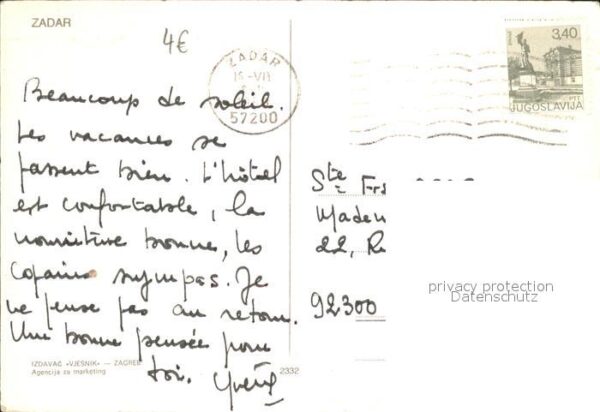 ZADAR
4€
ZADAR
57200
3,40
PTT
JUGOSLAVIJA
Beaucoup de soleil.
Les vacances se
passent bien. L'hôtel
est confortable, la
nourriture bonne, les
copains sympas. Je
ne pense pas au retour.
Une bonne pensée pour
toi.
Ste
22, R
92300
privacy protection
Datenschutz
IZDAVAČ «VJESNIK» — ZAGREB
Agencija za marketing
2332